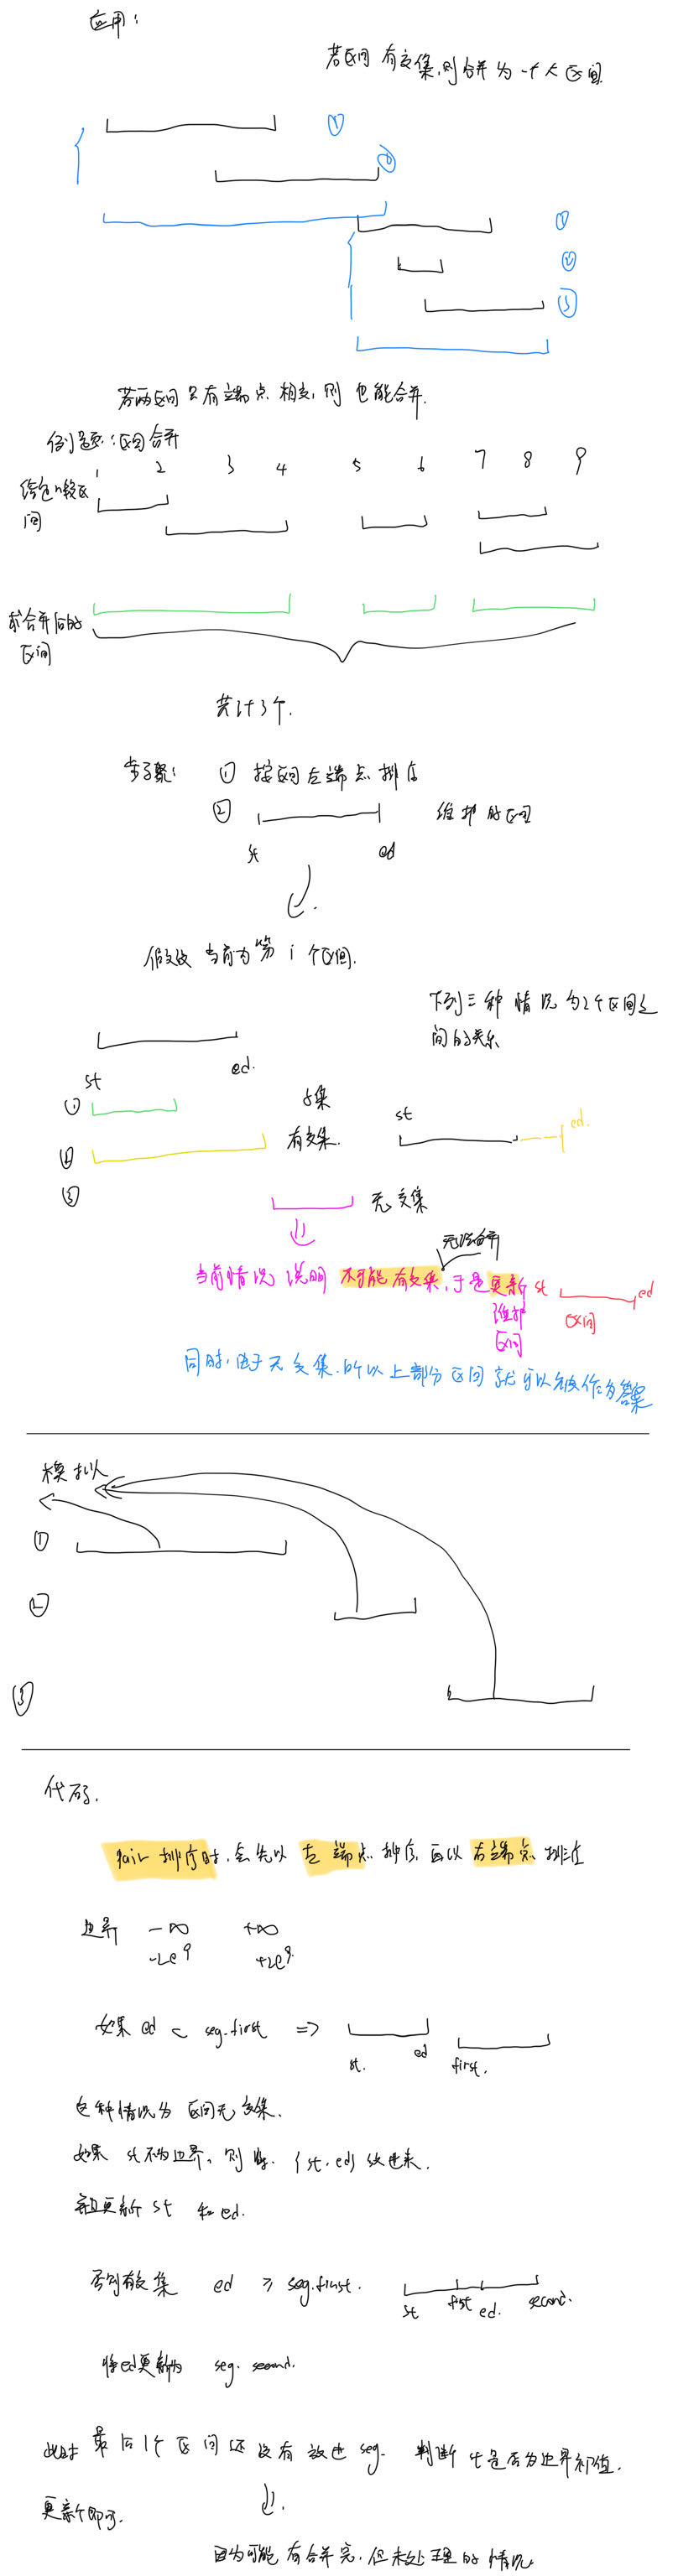 应用：
若区间有交集,则合并为一个大区间
①
②
①
②
③
若两区间只有端点相交,则也能合并.
例题:区间合并
1 2 3 4 5 6 7 8 9
给定n段区
间
求合并后的
区间
共计3个.
步骤: ① 按区间左端点排序
② 维护的区间
st ed
假设当前为第 i 个区间.
下列三种情况为2个区间之
间的关系
st ed.
① 子集
② 有交集.
st ed.
③ 无交集
无法合并
当前情况说明 不可能有交集,于是更新
维护
区间
st ed
区间
同时,由于无交集.所以上部分区间就可以被作为答案
模拟
①
②
③
代码.
pair 排序时,会先以左端点排序,再以右端点排序
边界 -∞ +∞
-2e9 +2e9
如果 ed < seg.first =>
st. ed first.
这种情况为区间无交集.
如果 st不为边界,则将 {st.ed}放进来.
并且更新 st 和 ed.
否则有交集 ed ≥ seg.first.
st first ed. second.
将ed更新为 seg. second.
此时最后1个区间还没有放进seg. 判断 st是否为边界初值.
更新即可.
因为可能有合并完,但未处理的情况.